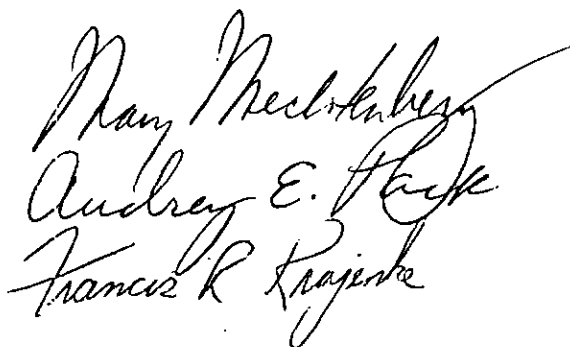 Mary Mechtenberg
Audrey E.
Francis R Krajenke